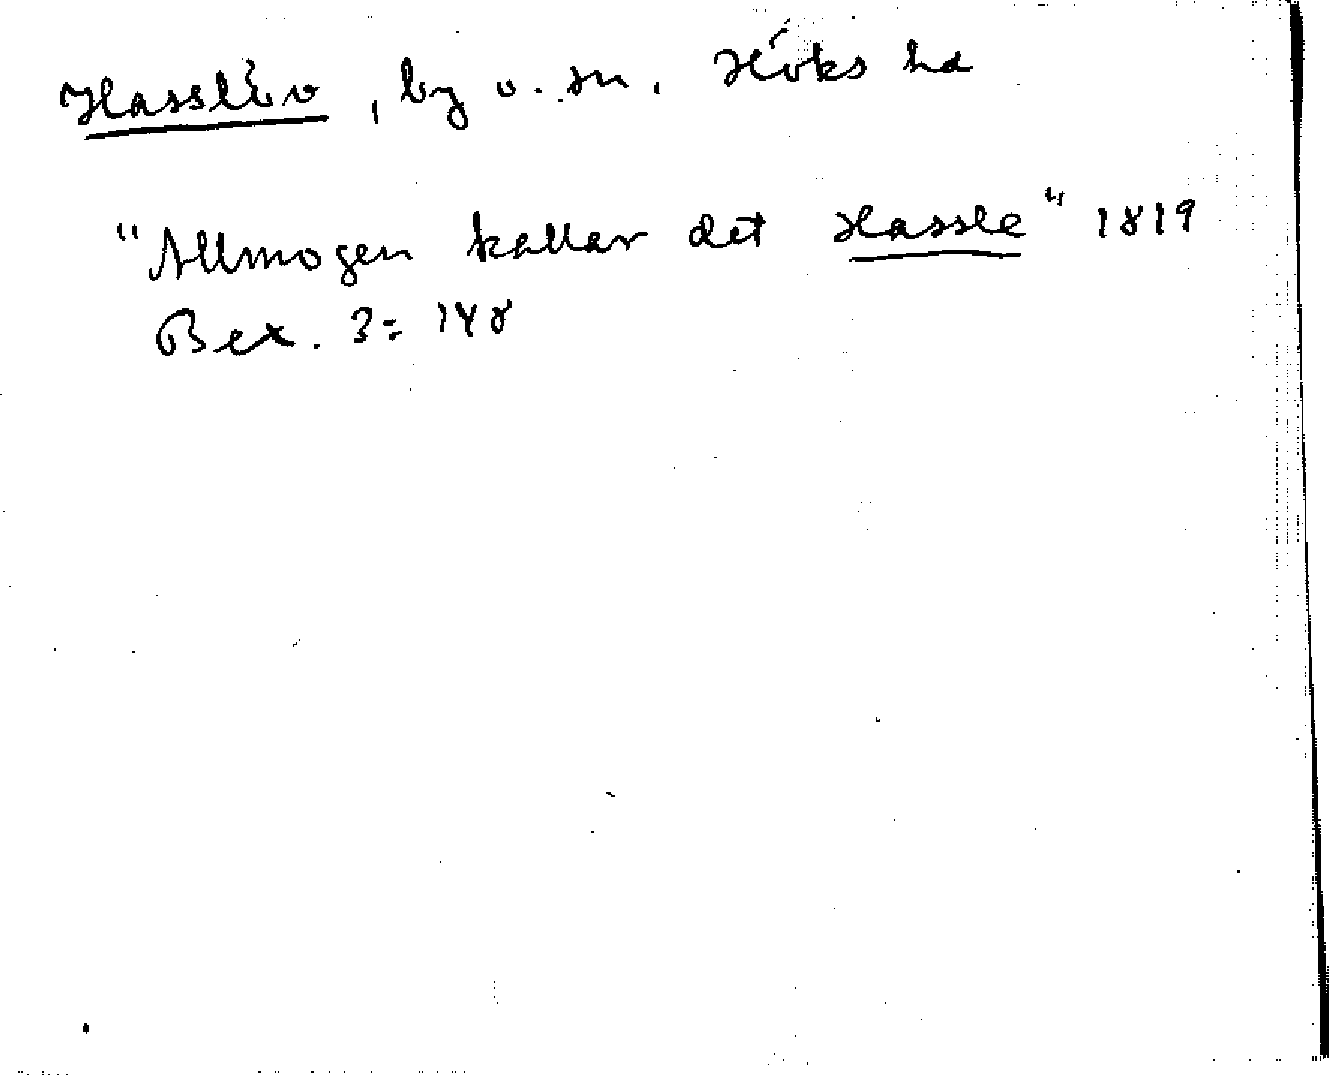 Hasslöv, by o. sn. Höks hd
"Allmogen kallar det Hassle" 1819
Bex. 3: 148